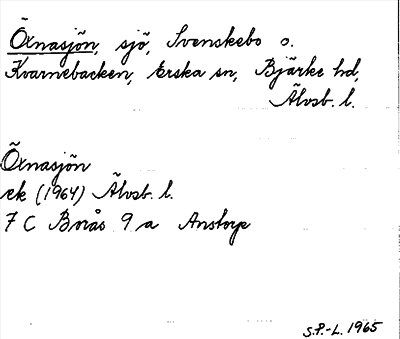 Öxnasjön, sjö, Svenskebo o.
Kvarnebacken, Erska sn, Bjärke hd,
Älvsb. l.
Öxnasjön
ek (1964) Älvsb. l.
7 C Borås 9 a Anstorp
S.P.-L. 1965